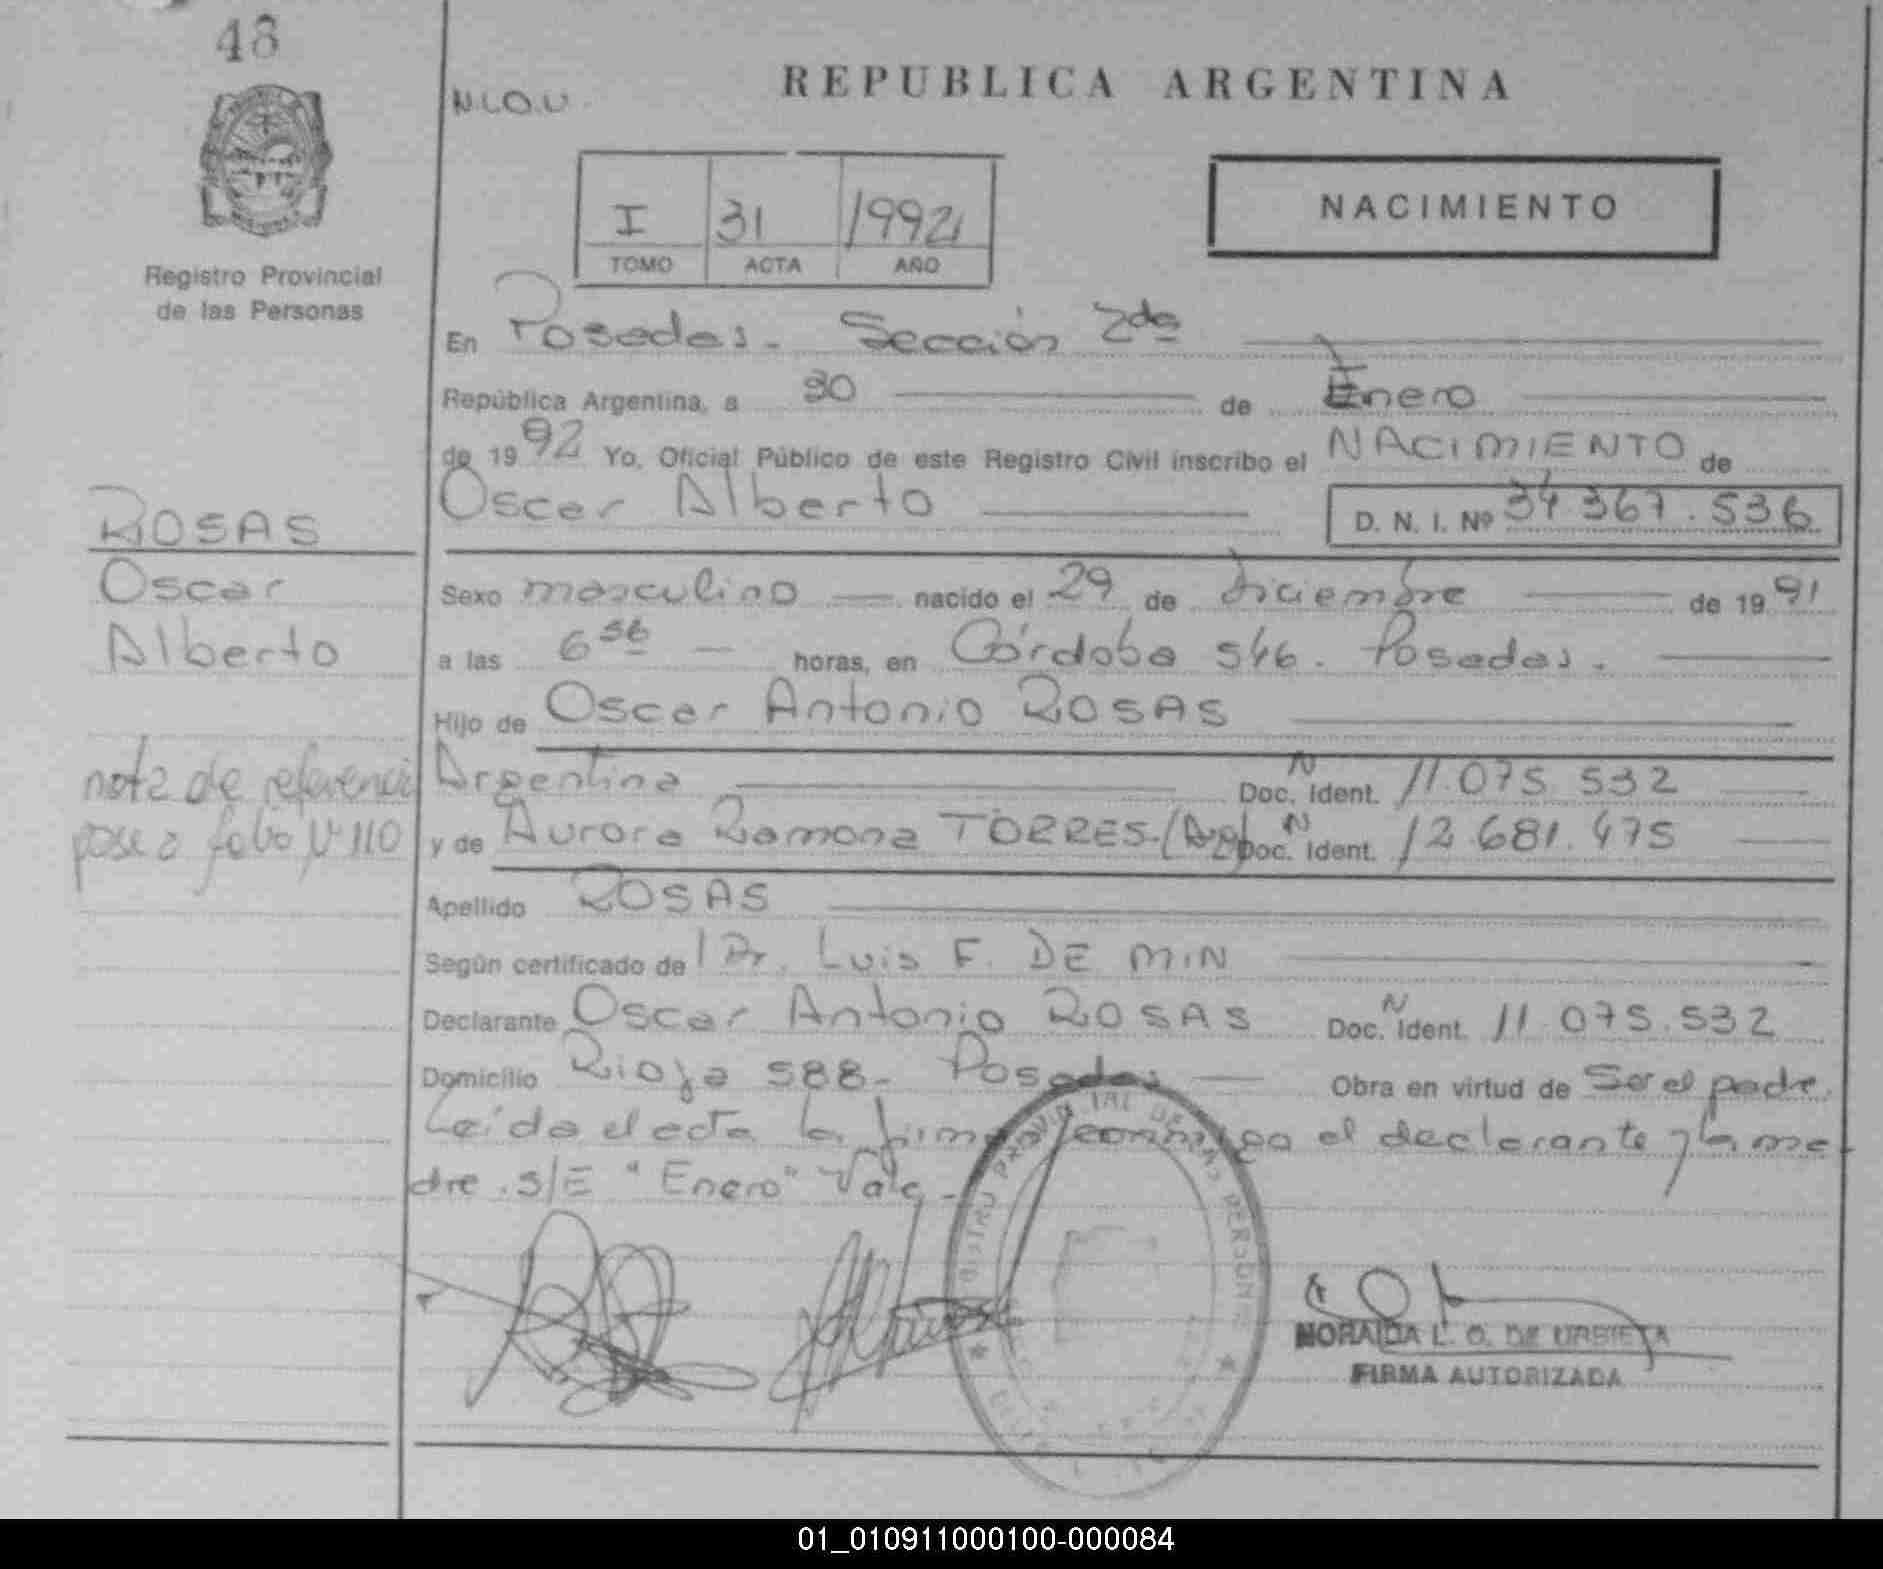 48
N.L.O.U.
REPUBLICA ARGENTINA
I 31 1992
TOMO ACTA AÑO
NACIMIENTO
Registro Provincial
de las Personas
En Posadas - Sección 2da
República Argentina, a 30 de Enero
de 1992 Yo, Oficial Público de este Registro Civil inscribo el NACIMIENTO de
Oscar Alberto D. N. I. Nº 34 367.536
ROSAS
Oscar
Alberto
Sexo masculino nacido el 29 de diciembre de 1991
a las 6 56 horas, en Córdoba 546. Posadas.
Hijo de Oscar Antonio ROSAS
Argentina Doc. Ident. N 11.075.532
y de Aurora Ramona TORRES. (Arg) Doc. Ident. N 12.681.475
nota de referencia
pase a folio Nº 110
Apellido ROSAS
Según certificado de Dr. Luis F. DE MIN
Declarante Oscar Antonio ROSAS Doc. Ident. N 11.075.532
Domicilio Rioja 588 - Posadas Obra en virtud de Ser el padre.
Leída el acta la firman conmigo el declarante y la ma-
dre. S/E "Enero" Vale -
REGISTRO PROVINCIAL DE LAS PERSONAS
NORAIDA L. O. DE URBIETA
FIRMA AUTORIZADA
01_010911000100-000084